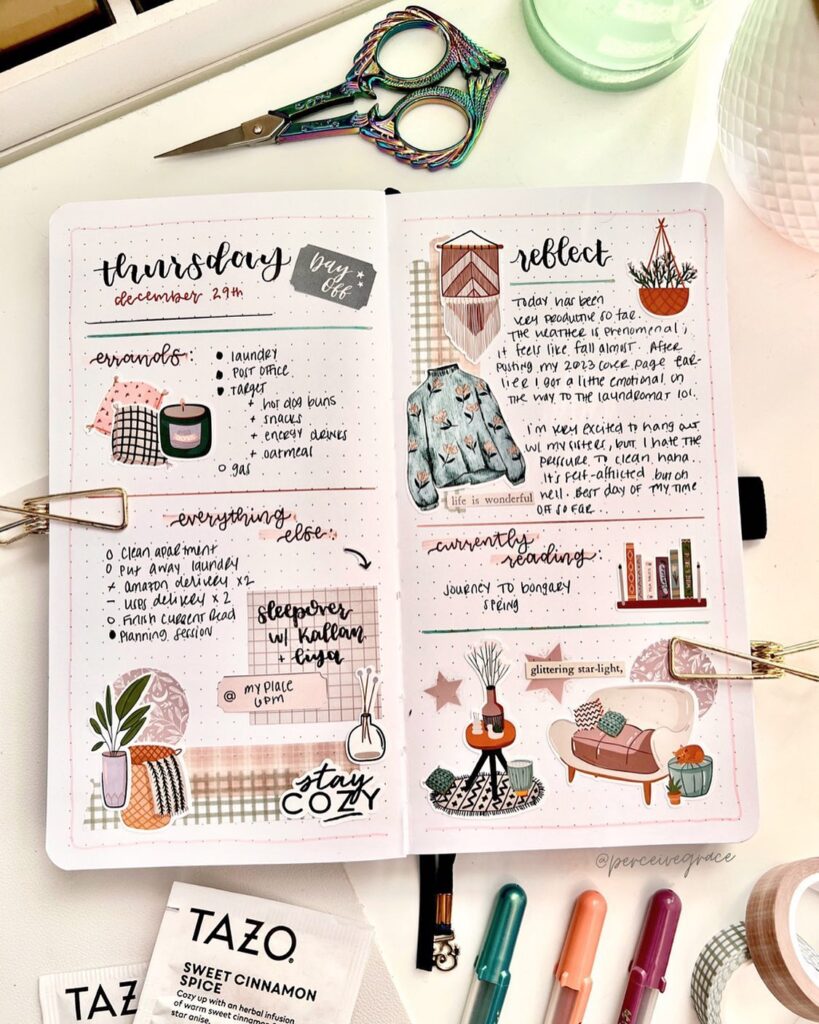 thursday
december 29th
Day
Off
errands:
• laundry
• post office
• target
+ hot dog buns
+ snacks
+ energy drinks
+ oatmeal
o gas
everything
else:
o Clean apartment
o Put away laundry
+ Amazon delivery x2
- USPS delivery x 2
o Finish current read
• Planning session
sleepover
w/ Kallan
+ Liya
@ my place
6pm
stay
COZY
reflect
Today has been
very productive so far.
The weather is phenomenal;
it feels like fall almost. After
posting my 2023 cover page ear-
lier I got a little emotional on
the way to the laundromat lol.
I'm very excited to hang out
w/ my sisters, but I hate the
pressure to clean, haha.
It's self-afflicted but oh
well. Best day of my time
off so far.
life is wonderful
currently
reading:
Journey to Bongary
Spring
glittering star-light,
@perceivegrace
TAZO
SWEET CINNAMON
SPICE
Cozy up with an herbal infusion
of warm sweet cinnamon
star anise.
TAZ